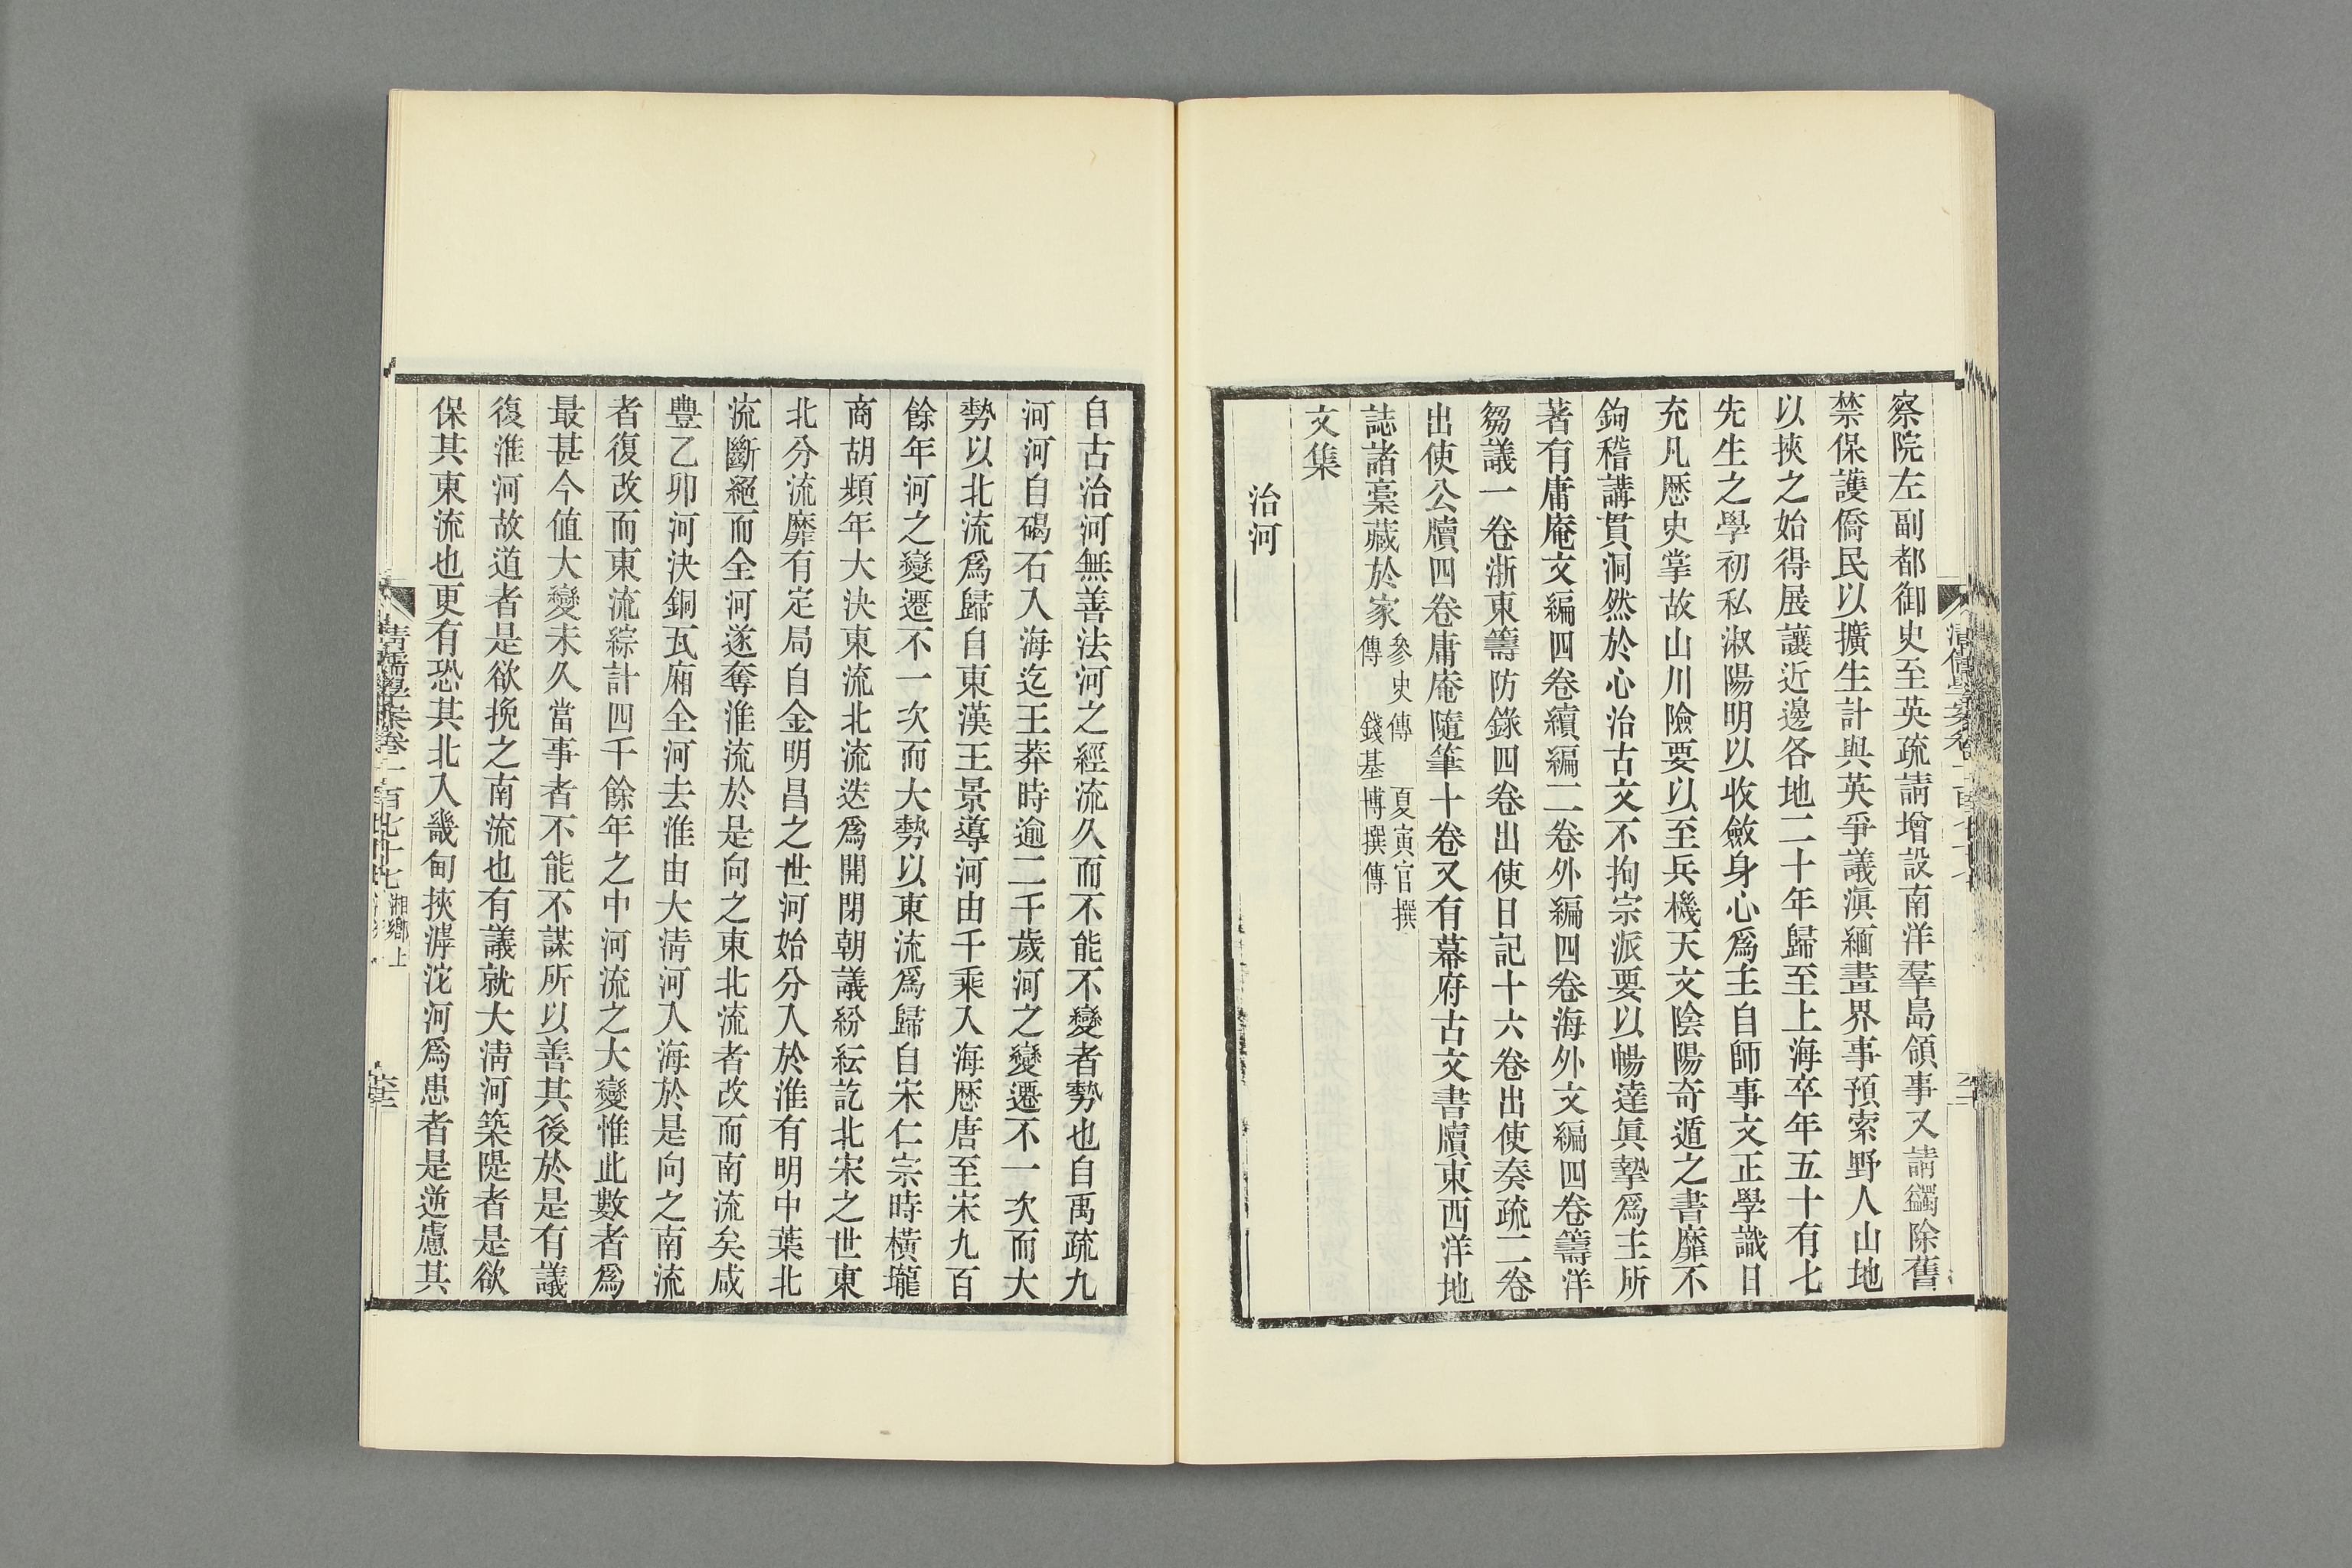 察院左副都御史至英疏請增設南洋羣島領事又請蠲除舊
禁保護僑民以擴生計與英爭議滇緬畫界事預索野人山地
以挾之始得展讓近邊各地二十年歸至上海卒年五十有七
先生之學初私淑陽明以收斂身心爲主自師事文正學識日
充凡歷史掌故山川險要以至兵機天文陰陽奇遁之書靡不
鉤稽講貫洞然於心治古文不拘宗派要以暢達眞摯爲主所
著有庸庵文編四卷續編二卷外編四卷海外文編四卷籌洋
芻議一卷浙東籌防錄四卷出使日記十六卷出使奏疏二卷
出使公牘四卷庸庵隨筆十卷又有幕府古文書牘東西洋地
誌諸稾藏於家
參史傳 夏寅官撰
傳 錢基博撰傳
文集
治河
自古治河無善法河之經流久而不能不變者勢也自禹疏九
河河自碣石入海迄王莽時逾二千歲河之變遷不一次而大
勢以北流爲歸自東漢王景導河由千乘入海歷唐至宋九百
餘年河之變遷不一次而大勢以東流爲歸自宋仁宗時橫壠
商胡頻年大決東流北流迭爲開閉朝議紛紜訖北宋之世東
北分流靡有定局自金明昌之世河始分入於淮有明中葉北
流斷絕而全河遂奪淮流於是向之東北流者改而南流矣咸
豐乙卯河決銅瓦廂全河去淮由大淸河入海於是向之南流
者復改而東流綜計四千餘年之中河流之大變惟此數者爲
最甚今值大變未久當事者不能不謀所以善其後於是有議
復淮河故道者是欲挽之南流也有議就大淸河築隄者是欲
保其東流也更有恐其北入畿甸挾滹沱河爲患者是逆慮其
清儒學案卷一百七十七 湘鄉上